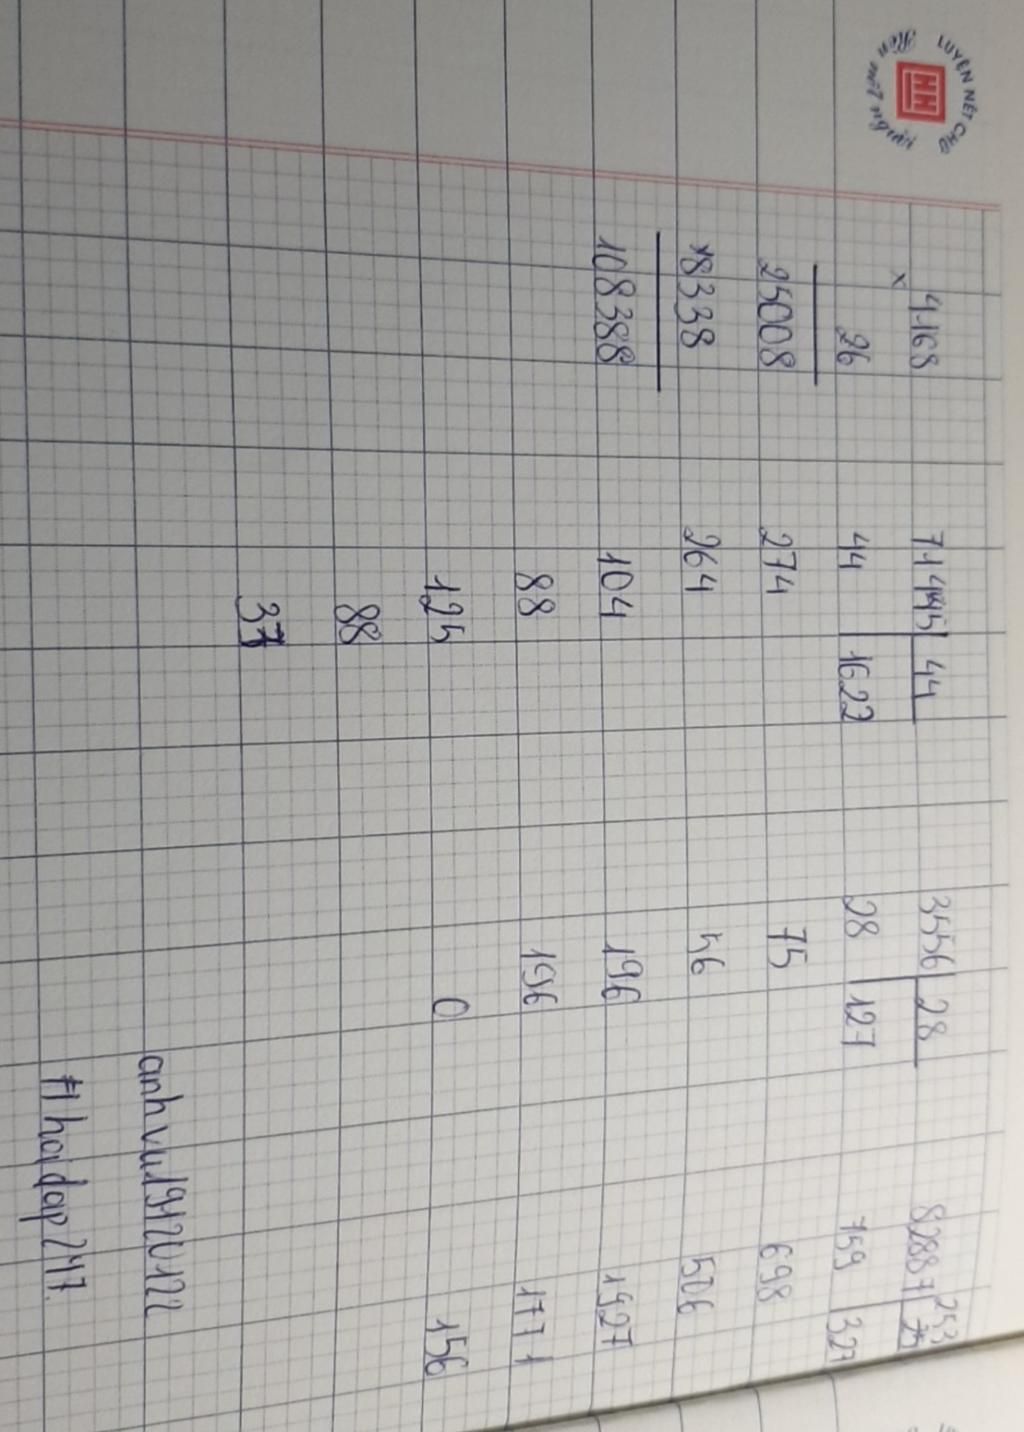 LUYỆN NÉT CHỮ
Rèn nết người
HH
4168
x
26
25008
+8338
108388
71445 44
44 1622
274
264
104
88
125
88
37
3556 28
28 127
75
56
196
196
0
82887 253
759 327
698
506
1927
1771
156
anhvu19120122
#hoidap247